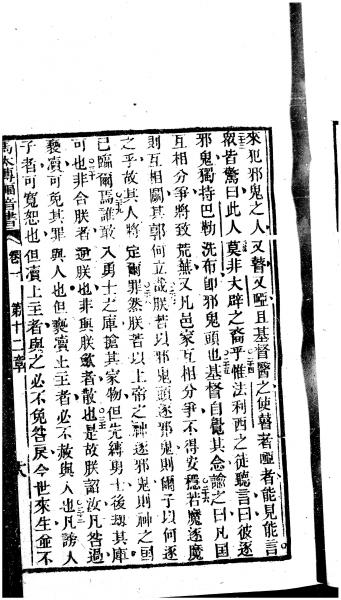 來犯邪鬼之人又瞽又啞且基督醫之使瞽者啞者能見能言
二十三
衆皆驚曰此人莫非大辟之裔乎惟法利西之徒聽言曰彼逐
二十四
邪鬼獨恃巴勒洗布即邪鬼頭也基督自覺其念諭之曰凡國
二十五
互相分爭將致荒蕪又凡邑家互相分爭不得安穩若魔逐魔
二十六
則互相鬭其郭何立哉朕若以邪鬼頭逐邪鬼則爾子以何逐
二十七
之乎故其人將定爾罪然朕若以上帝之神逐邪鬼則神之國
二十八
已臨爾焉誰敢入勇士之庫搶其家物但先縛勇士後刼其庫
二十九
可也非合朕者逆朕也非與朕歛者散也是故朕詔汝凡咎過
三十
褻瀆可免其罪與人也但褻瀆上主者必不赦與人也凡謗人
子者可寬恕也但瀆上主者與之必不免咎戾今世來生並不
馬太傳福音書
卷一
第十二章